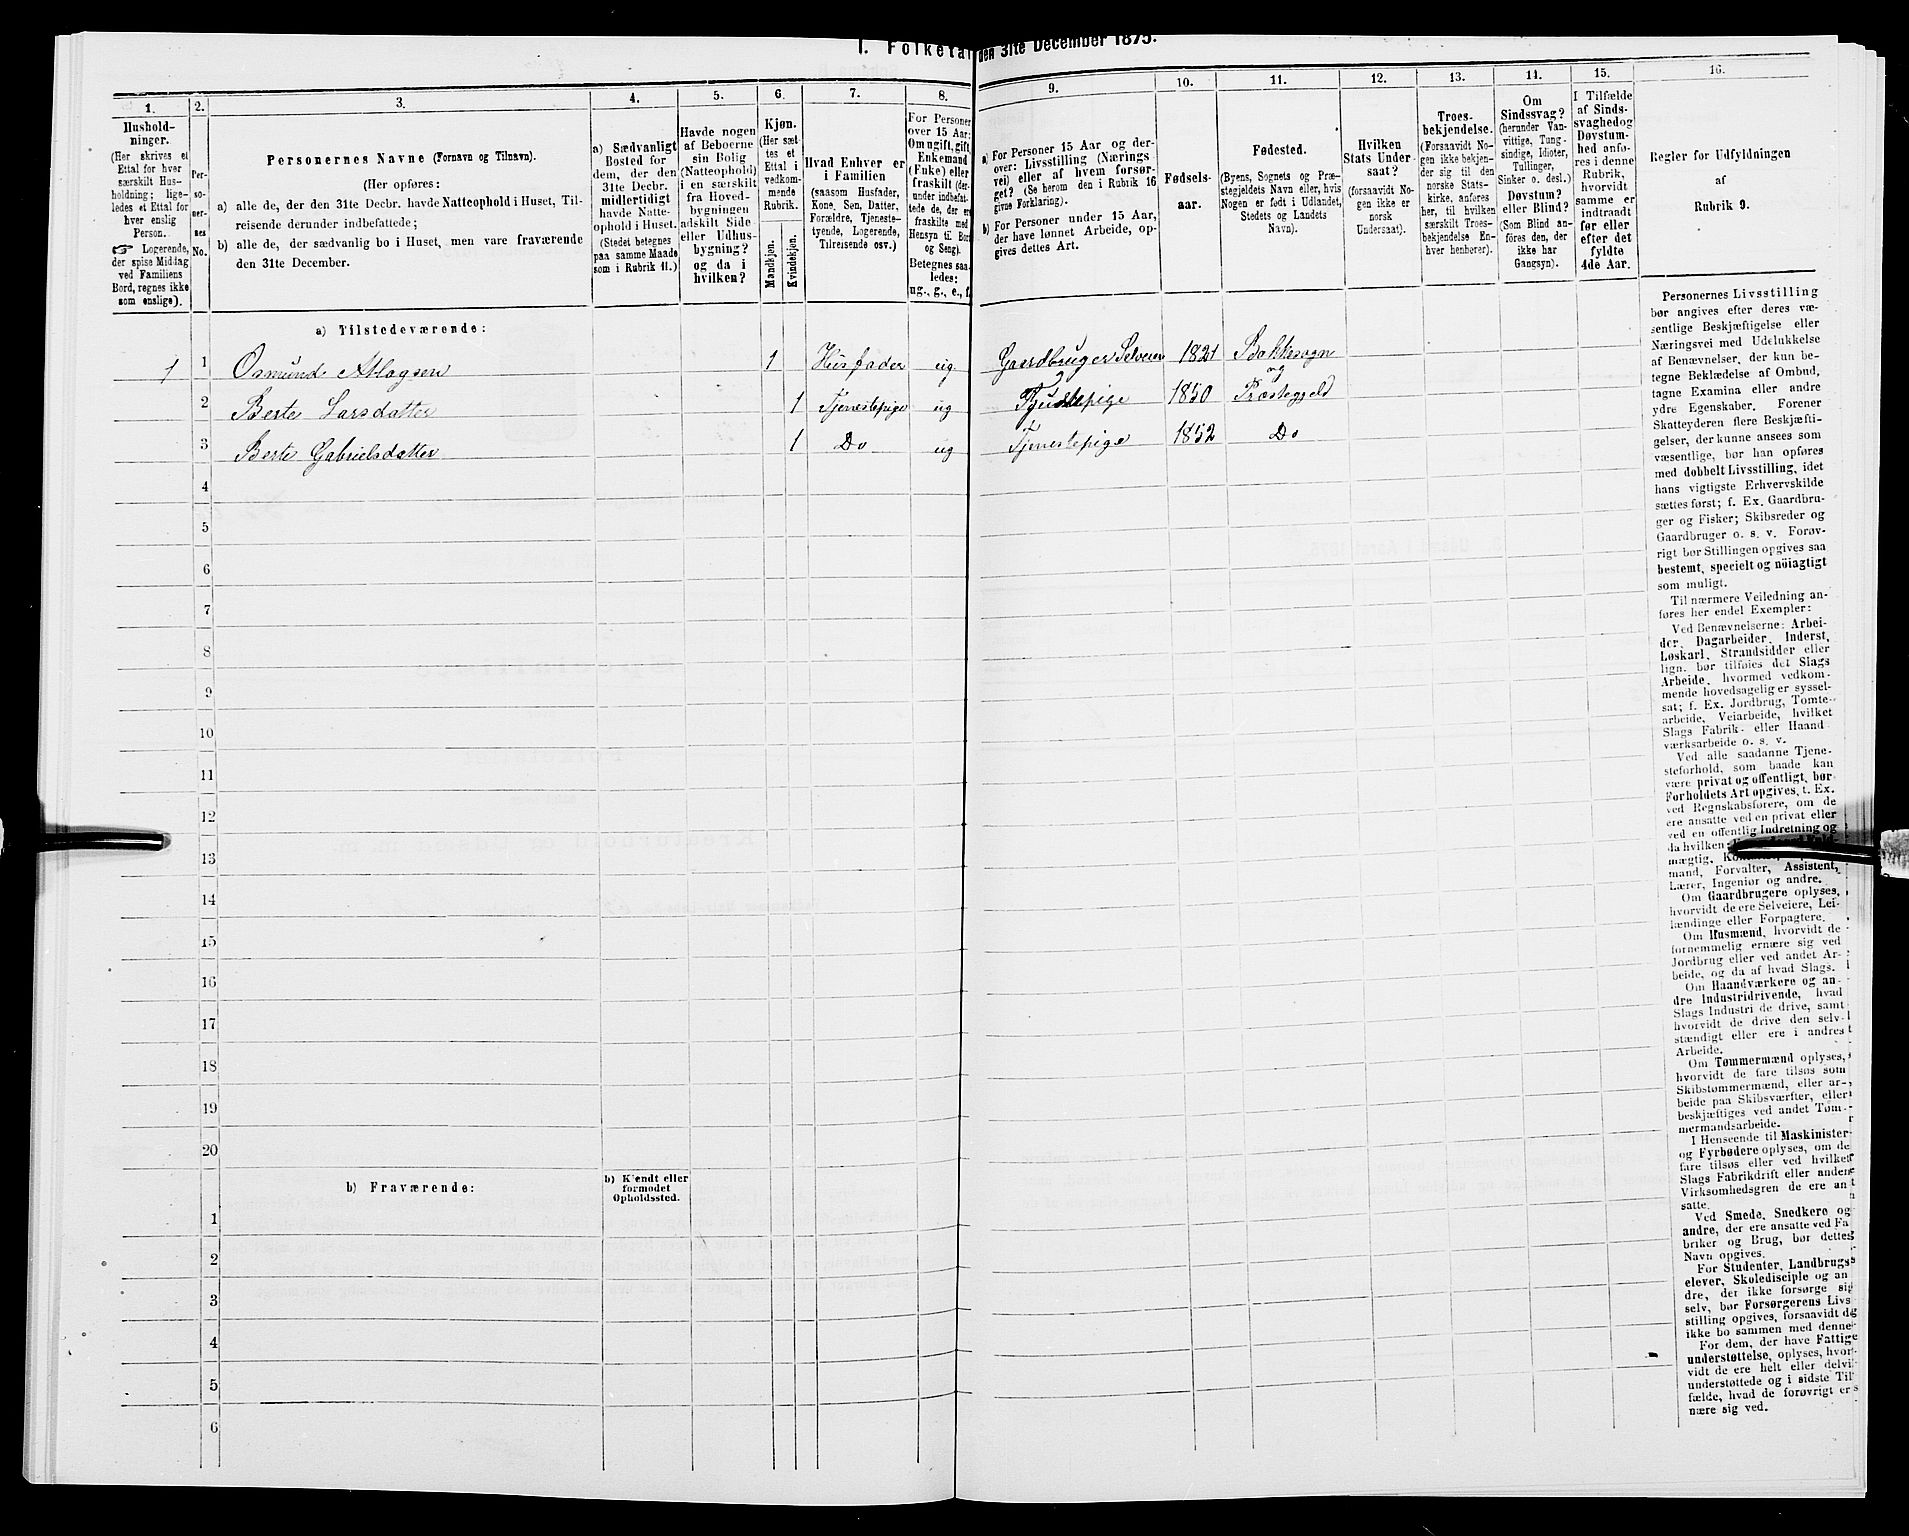 1. Folketal den 31te December 1875.
1. 2. 3. 4. 5. 6. 7. 8. 9. 10. 11. 12. 13. 14. 15. 16.
Hushold-
ninger.
(Her skrives et
Ettal for hver
særskilt Hus-
holdning; lige-
ledes et Ettal for
hver enslig
Person.
☞ Logerende,
der spise Middag
ved Familiens
Bord, regnes ikke
som enslige).
Per-
so-
ner-
nes
No.
Personernes Navne (Fornavn og Tilnavn).
(Her opføres:
a) alle de, der den 31te Decbr. havde Natteophold i Huset, Til-
reisende derunder indbefattede;
b) alle de, der sædvanlig bo i Huset, men vare fraværende
den 31te December.
a) Sædvanligt
Bosted for
dem, der den
31te Decbr.
midlertidigt
havde Natte-
ophold i Huset.
(Stedet betegnes
paa samme Maade
som i Rubrik 11.)
Havde nogen
af Beboerne
sin Bolig
(Natteophold)
i en særskilt
fra Hoved-
bygningen
adskilt Side-
eller Udhus-
bygning?
og da i
hvilken?
Kjøn.
(Her sæt-
tes et
Ettal i
vedkom-
mende
Rubrik.
Mandkjøn.
Kvindekjøn.
Hvad Enhver er
i Familien
(saasom Husfader,
Kone, Søn, Datter,
Forældre, Tjeneste-
tyende, Logerende,
Tilreisende osv.)
For Personer
over 15 Aar:
Om ugift, gift,
Enkemand
(Enke) eller
fraskilt (der-
under indbefat-
tede de, der er
fraskilte med
Hensyn til Bord
og Seng).
Betegnes saa-
ledes:
ug., g., e., f.
a) For Personer 15 Aar og der-
over: Livsstilling (Nærings
vei) eller af hvem forsør-
get? (Se herom den i Rubrik 16
givne Forklaring).
b) For Personer under 15 Aar,
der have lønnet Arbeide, op-
gives dettes Art.
Fødsels-
aar.
Fødested.
(Byens, Sognets og Præ-
stegjeldets Navn eller, hvis
Nogen er født i Udlandet,
Stedets og Landets
Navn).
Hvilken
Stats Under-
saat?
(forsaavidt No-
gen ikke er
norsk
Undersaat).
Troes-
bekjendelse.
(Forsaavidt No-
gen ikke bekjen-
der sig til den
norske Stats-
kirke, anføres
her, til hvilken
særskilt Troes-
bekjendelse En-
hver henhører).
Om
Sindssvag?
(herunder Van-
vittige, Tung-
sindige, Idioter,
Tullinger,
Sinker o. desl.)
Døvstum?
eller Blind?
(Som Blind an-
føres den, der
ikke har
Gangsyn).
I Tilfælde
af Sinds-
svaghedog
Døvstum-
hed anfø-
res i denne
Rubrik,
hvorvidt
samme er
indtraadt
før eller
efter det
fyldte
4de Aar.
Regler for Udfyldningen
af
Rubrik 9.
a) Tilstedeværende:
1 1 Osmund Atlagsen 1 Husfader ug. Gaardbruger Selveier 1821 Bakkesogn
og
2 Berte Larsdatter 1 Tjenestepige ug 1850 Præstegjeld
3 Berte Gabrielsdatter 1 Do ug Tjenestepige 1852 Do
4
5
6
7
8
9
10
11
12
13
14
15
16
17
18
19
20
b) Fraværende:
b) Kjendt eller
formodet
Opholdssted.
1
2
3
4
5
6
Personernes Livsstilling
bør angives efter deres væ-
sentlige Beskjæftigelse eller
Næringsvei med Udelukkelse
af Benævnelser, der kun be-
tegne Beklædelse af Ombud,
tagne Examina eller andre
ydre Egenskaber. Forener
Skatteyderen flere Beskjæfti-
gelser, der kunne ansees som
væsentlige, bør han opføres
med dobbelt Livsstilling, idet
hans vigtigste Erhvervskilde
sættes først; f. Ex. Gaardbru-
ger og Fisker; Skibsreder og
Gaardbruger o. s. v. Forøv-
rigt bør Stillingen opgives saa
bestemt, specielt og nöiagtigt
som muligt.
Til nærmere Veiledning an-
føres her endel Exempler:
Ved Benævnelserne: Arbei-
der, Dagarbeider, Inderst,
Løskarl, Strandsidder eller
lign. bør tilføies det Slags
Arbeide, hvormed vedkom-
mende hovedsagelig er syssel-
sat; f. Ex. Jordbrug, Tomte-
arbeide, Veiarbeide, hvilket
Slags Fabrik- eller Haand
værksarbeide o. s. v.
Ved alle saadanne Tjene-
steforhold, som baade kan
være privat og offentligt, bør
Forholdets Art opgives, t. Ex.
ved Regnskabsførere, om de
ere ansatte ved en privat eller
ved en offentlig Indretning og
da hvilken;
mægtig,
mand, Forvalter, Assistent,
Lærer, Ingeniør og andre.
Om Gaardbrugere oplyses,
hvorvidt de ere Selveiere, Lei-
lændinge eller Forpagtere.
Om Husmænd, hvorvidt de
fornemmelig ernære sig ved
Jordbrug eller ved andet Ar-
beide, og da af hvad Slags.
Om Haandværkere og an-
dre Industridrivende, hvad
Slags Industri de drive, samt
hvorvidt de drive den selv-
stændigt eller ere i andres
Arbeide.
Om Tømmermænd oplyses,
hvorvidt de fare tilsøs som
Skibstømmermænd, eller ar-
beide paa Skibsværfter, eller
beskjæftiges ved andet Tøm-
mermandsarbeide.
I Henseende til Maskinister
og Fyrbødere oplyses, om de
fare tilsøs eller ved hvilket
Slags Fabrikdrift eller anden
Virksomhedsgren de ere an
satte.
Ved Smede, Snedkere og
andre, der ere ansatte ved Fa
briker og Brug, bør dettes
Navn opgives.
For Studenter, Landbrugs
elever, Skoledisciple og an
dre, der ikke forsørge sig
selv, bør Forsørgerens Livs
stilling opgives, forsaavidt de
ikke bo sammen med denne
For dem, der have Fattig
understøttelse, oplyses, hvor
vidt de ere helt eller delvi
understøttede og i sidste Til
fælde, hvad de forøvrigt er
nære sig ved.